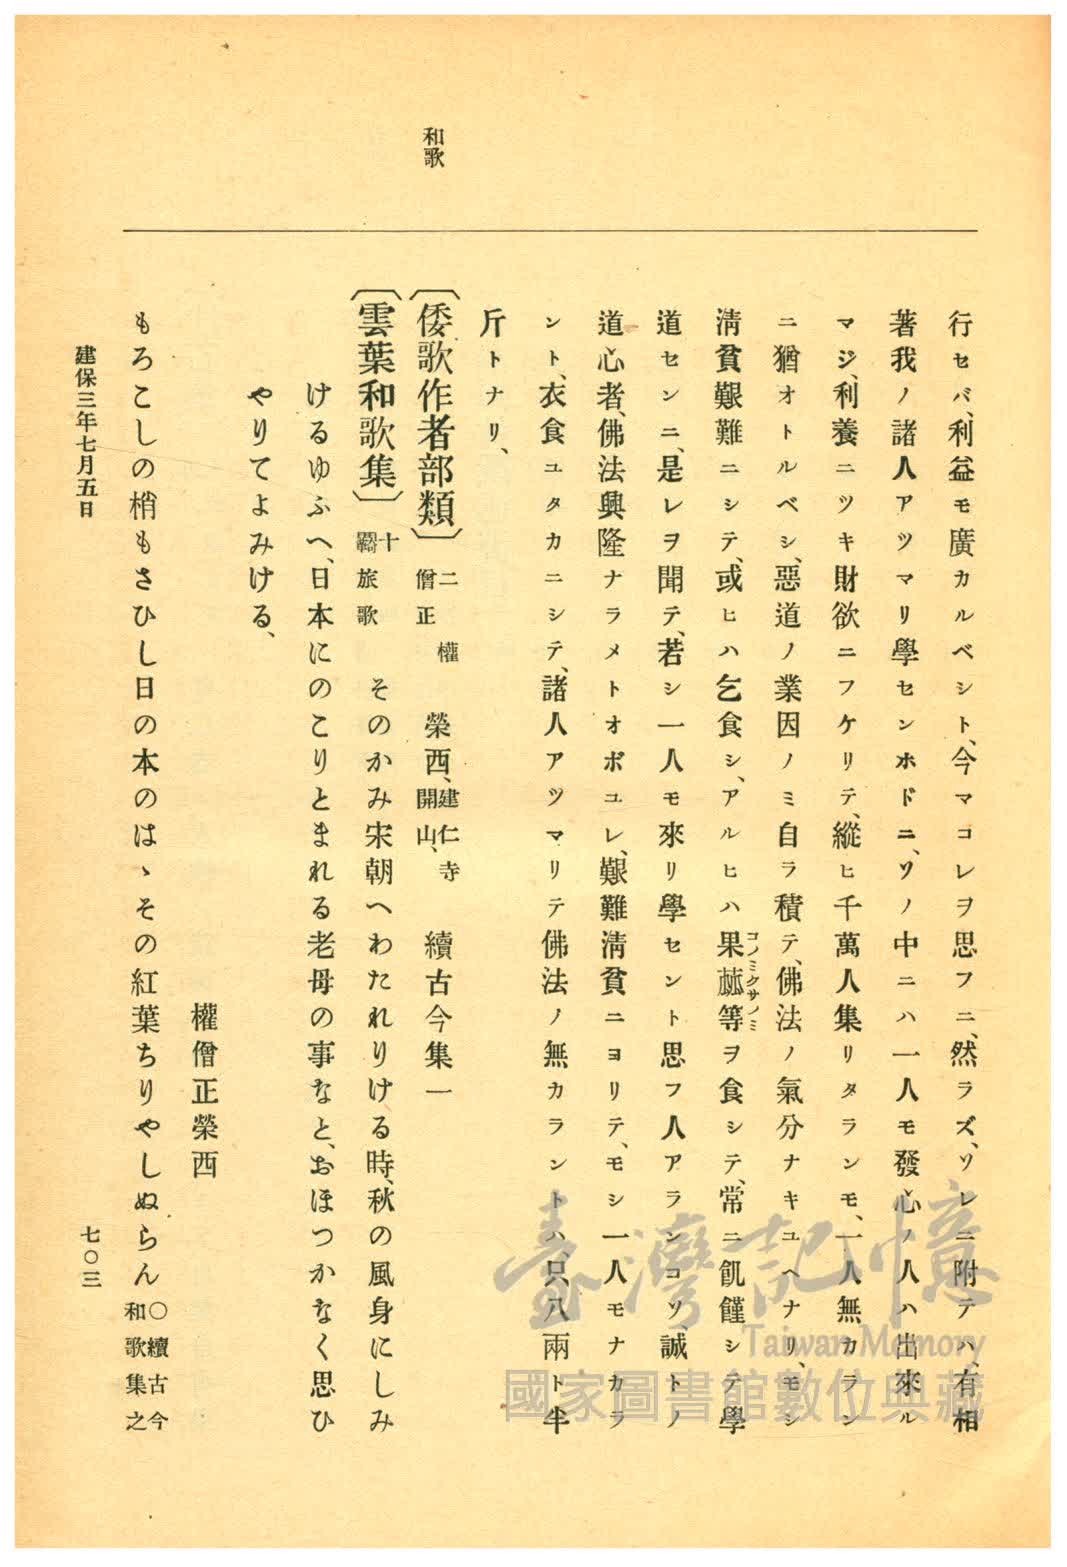 和歌
行セバ、利益モ廣カルベシト、今マコレヲ思フニ、然ラズ、ソレニ附テハ、有相
著我ノ諸人アツマリ學センホドニ、ソノ中ニハ一人モ發心ノ人ハ出來ル
マジ、利養ニツキ財欲ニフケリテ、縱ヒ千萬人集リタランモ、一人無カラン
ニ猶オトルベシ、惡道ノ業因ノミ自ラ積テ、佛法ノ氣分ナキユヘナリ、モシ
淸貧艱難ニシテ、或ヒハ乞食シ、アルヒハ果蓏等ヲ食シテ、常ニ飢饉シテ學
コノミクサノミ
道センニ、是レヲ聞テ、若シ一人モ來リ學セント思フ人アランコソ、誠トノ
道心者、佛法興隆ナラメトオボユレ、艱難淸貧ニヨリテ、モシ一人モナカラ
ント、衣食ユタカニシテ、諸人アツマリテ佛法ノ無カラントハ、只八兩ト半
斤トナリ、
〔倭歌作者部類〕二僧正 權 榮西、建仁寺開山、 續古今集一
〔雲葉和歌集〕十羇旅歌 そのかみ宋朝へわたれりける時、秋の風身にしみ
けるゆふへ、日本にのこりとまれる老母の事なと、おほつかなく思ひ
やりてよみける、
權僧正榮西
もろこしの梢もさひし日の本のはゝその紅葉ちりやしぬらん〇續古今和歌集之
建保三年七月五日
七〇三
臺灣記憶
Taiwan Memory
國家圖書館數位典藏